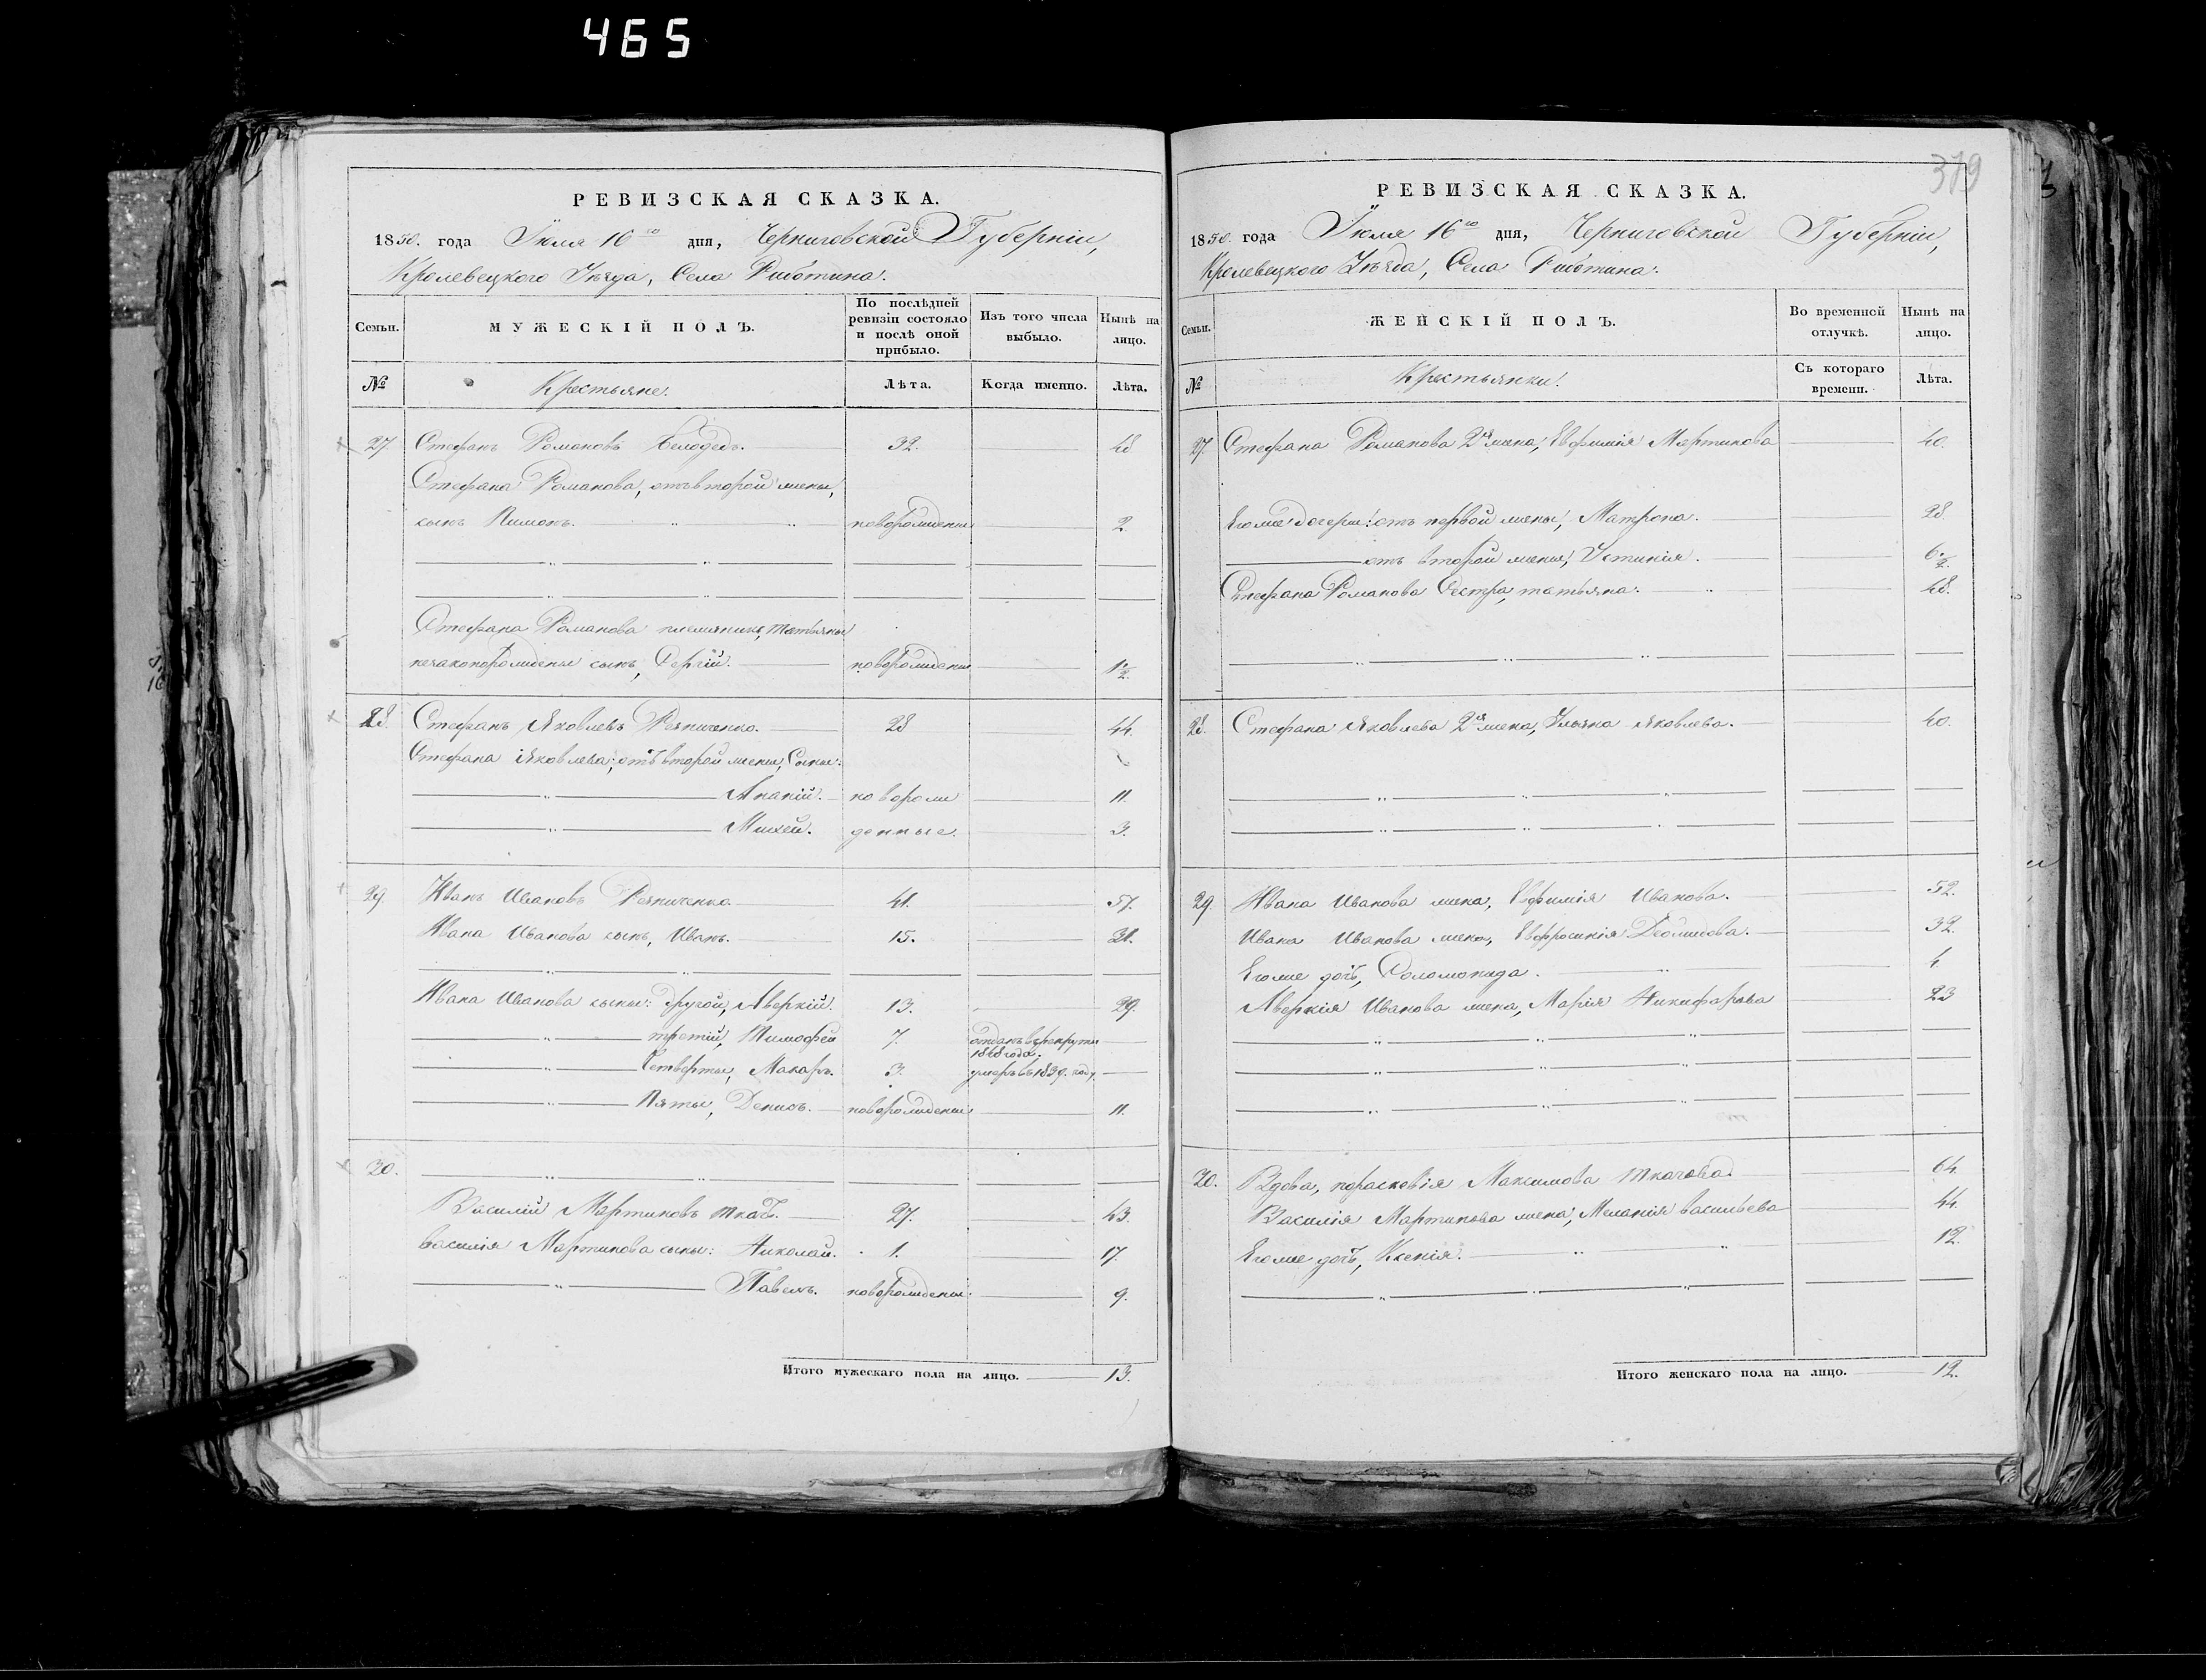 465
РЕВИЗСКАЯ СКАЗКА.
1850. года Іюля 16го дня, Черниговской Губерніи,
Кролевецкого Уѣзда, Села Работина.
Семьи.
МУЖЕСКІЙ ПОЛЪ.
По послѣдней ревизіи состояло и послѣ оной прибыло.
Изъ того числа выбыло.
Нынѣ на лицо.
№
Крестьяне.
Лѣта.
Когда именно.
Лѣта.
27. Стефанъ Романовъ 32. 48
Стефана Романова, отъ второй жены,
сынъ Пимонъ. новорожденный 2
Стефана Романова племянникъ, татьяны
незаконорожденый сынъ, Сергій. новорожденый 1/2.
28. Стефанъ Яковлевъ Резниченко. 28 44.
Стефана Яковлева, отъ второй жены, Сыны:
Ананій. новорож 11.
Михей. денные. 3.
29 Иванъ Ивановъ Резниченко 41. 57.
Ивана Иванова сынъ, Иванъ. 15. 31.
Ивана Иванова сыны: другой, Аверкій. 13. 29.
третій, Тимофей 7. отданъ в рекруты 1848 года.
Четверты, Макаръ. 3. умеръ въ 1839. году
Пяты, Денисъ. новорожденый 11.
30.
Василий Мартиновъ ткачъ. 27. 43.
Василія Мартинова сыны: Николай. 1. 17.
Павелъ. новорожденый. 9.
Итого мужескаго пола на лицо. 13.
379
РЕВИЗСКАЯ СКАЗКА.
1850. года Іюля 16го дня, Черниговской Губерніи,
Кролевецкого Уѣзда, Села Работина.
Семьи.
ЖЕНСКІЙ ПОЛЪ.
Во временной отлучкѣ.
Нынѣ на лицо.
№
Крестьянки.
Съ котораго времени.
Лѣта.
27. Стефана Романова 2я жена, Евфимія Мартинова 40.
Егоже дочери: отъ первой жены, Матрона. 28.
отъ второй жены, Устинія. 6. 1/2.
Стефана Романова Сестра, татьяна. 48.
28. Стефана Яковлева 2я жена, Ульяна Яковлева. 40.
29. Ивана Иванова жена, Евфимія Иванова. 52.
Ивана Иванова жена, Евфросинія Діомидова. 32.
Егоже дочь, Соломонида. 4.
Аверкія Иванова жена, Марія Никифорова 23
30. Вдова, параскевія Максимова ткачова. 64.
Василія Мартинова жена, Меланія васильева 44.
Егоже дочь, Ксенія. 12.
Итого женскаго пола на лицо. 12.